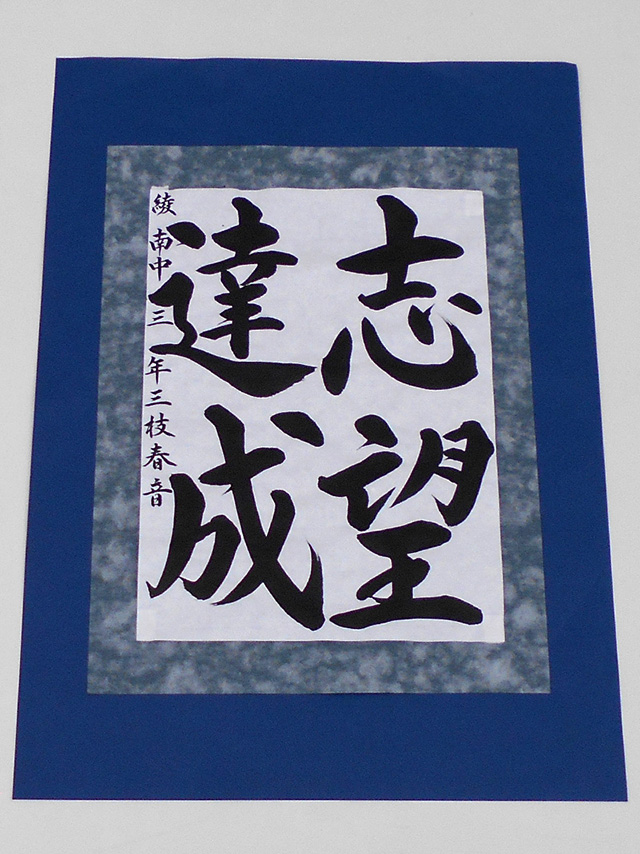 志望
達成
綾南中三年三枝春音